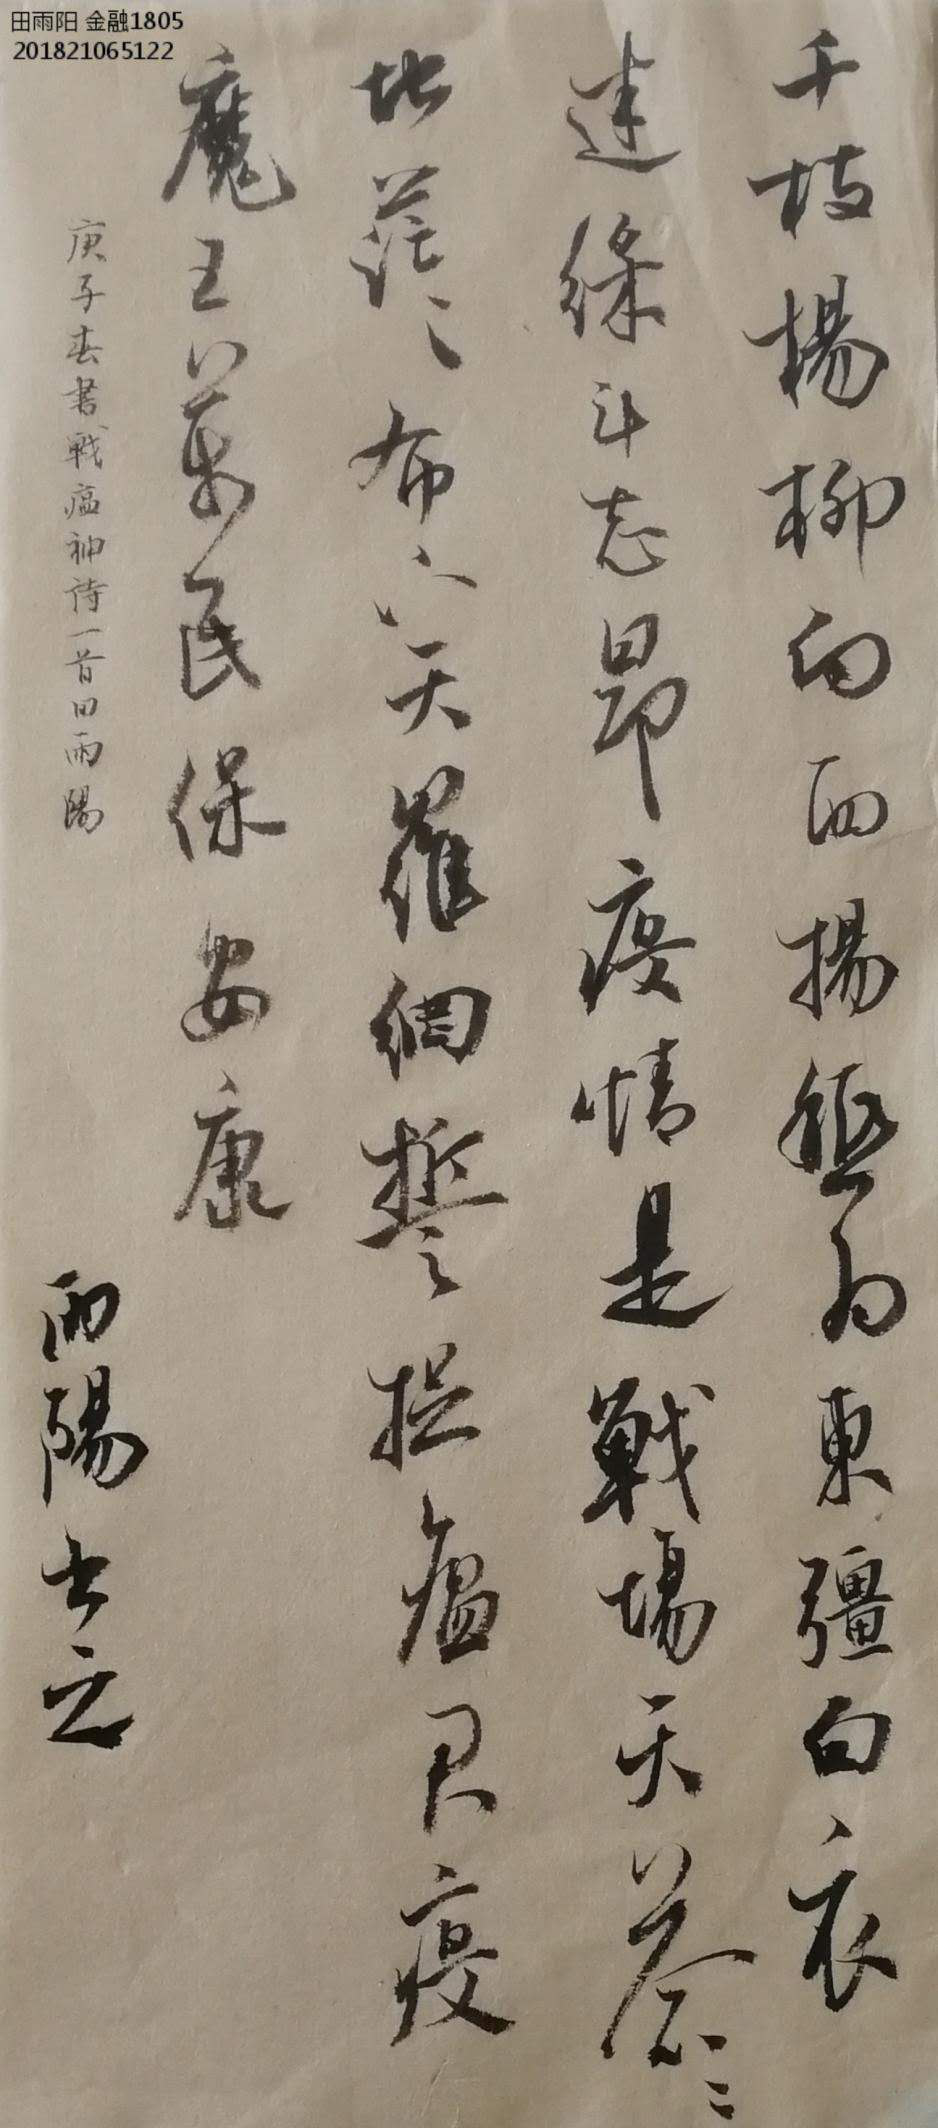 田雨阳 金融1805
201821065122
千枝楊柳向西揚 东疆白衣
綠斗志昂疫情是戰場天蒼々
地茫々布下天羅網誓捉瘟君疫
魔王萬民保安康
庚子春書戰瘟神詩一首田雨陽
雨陽书之